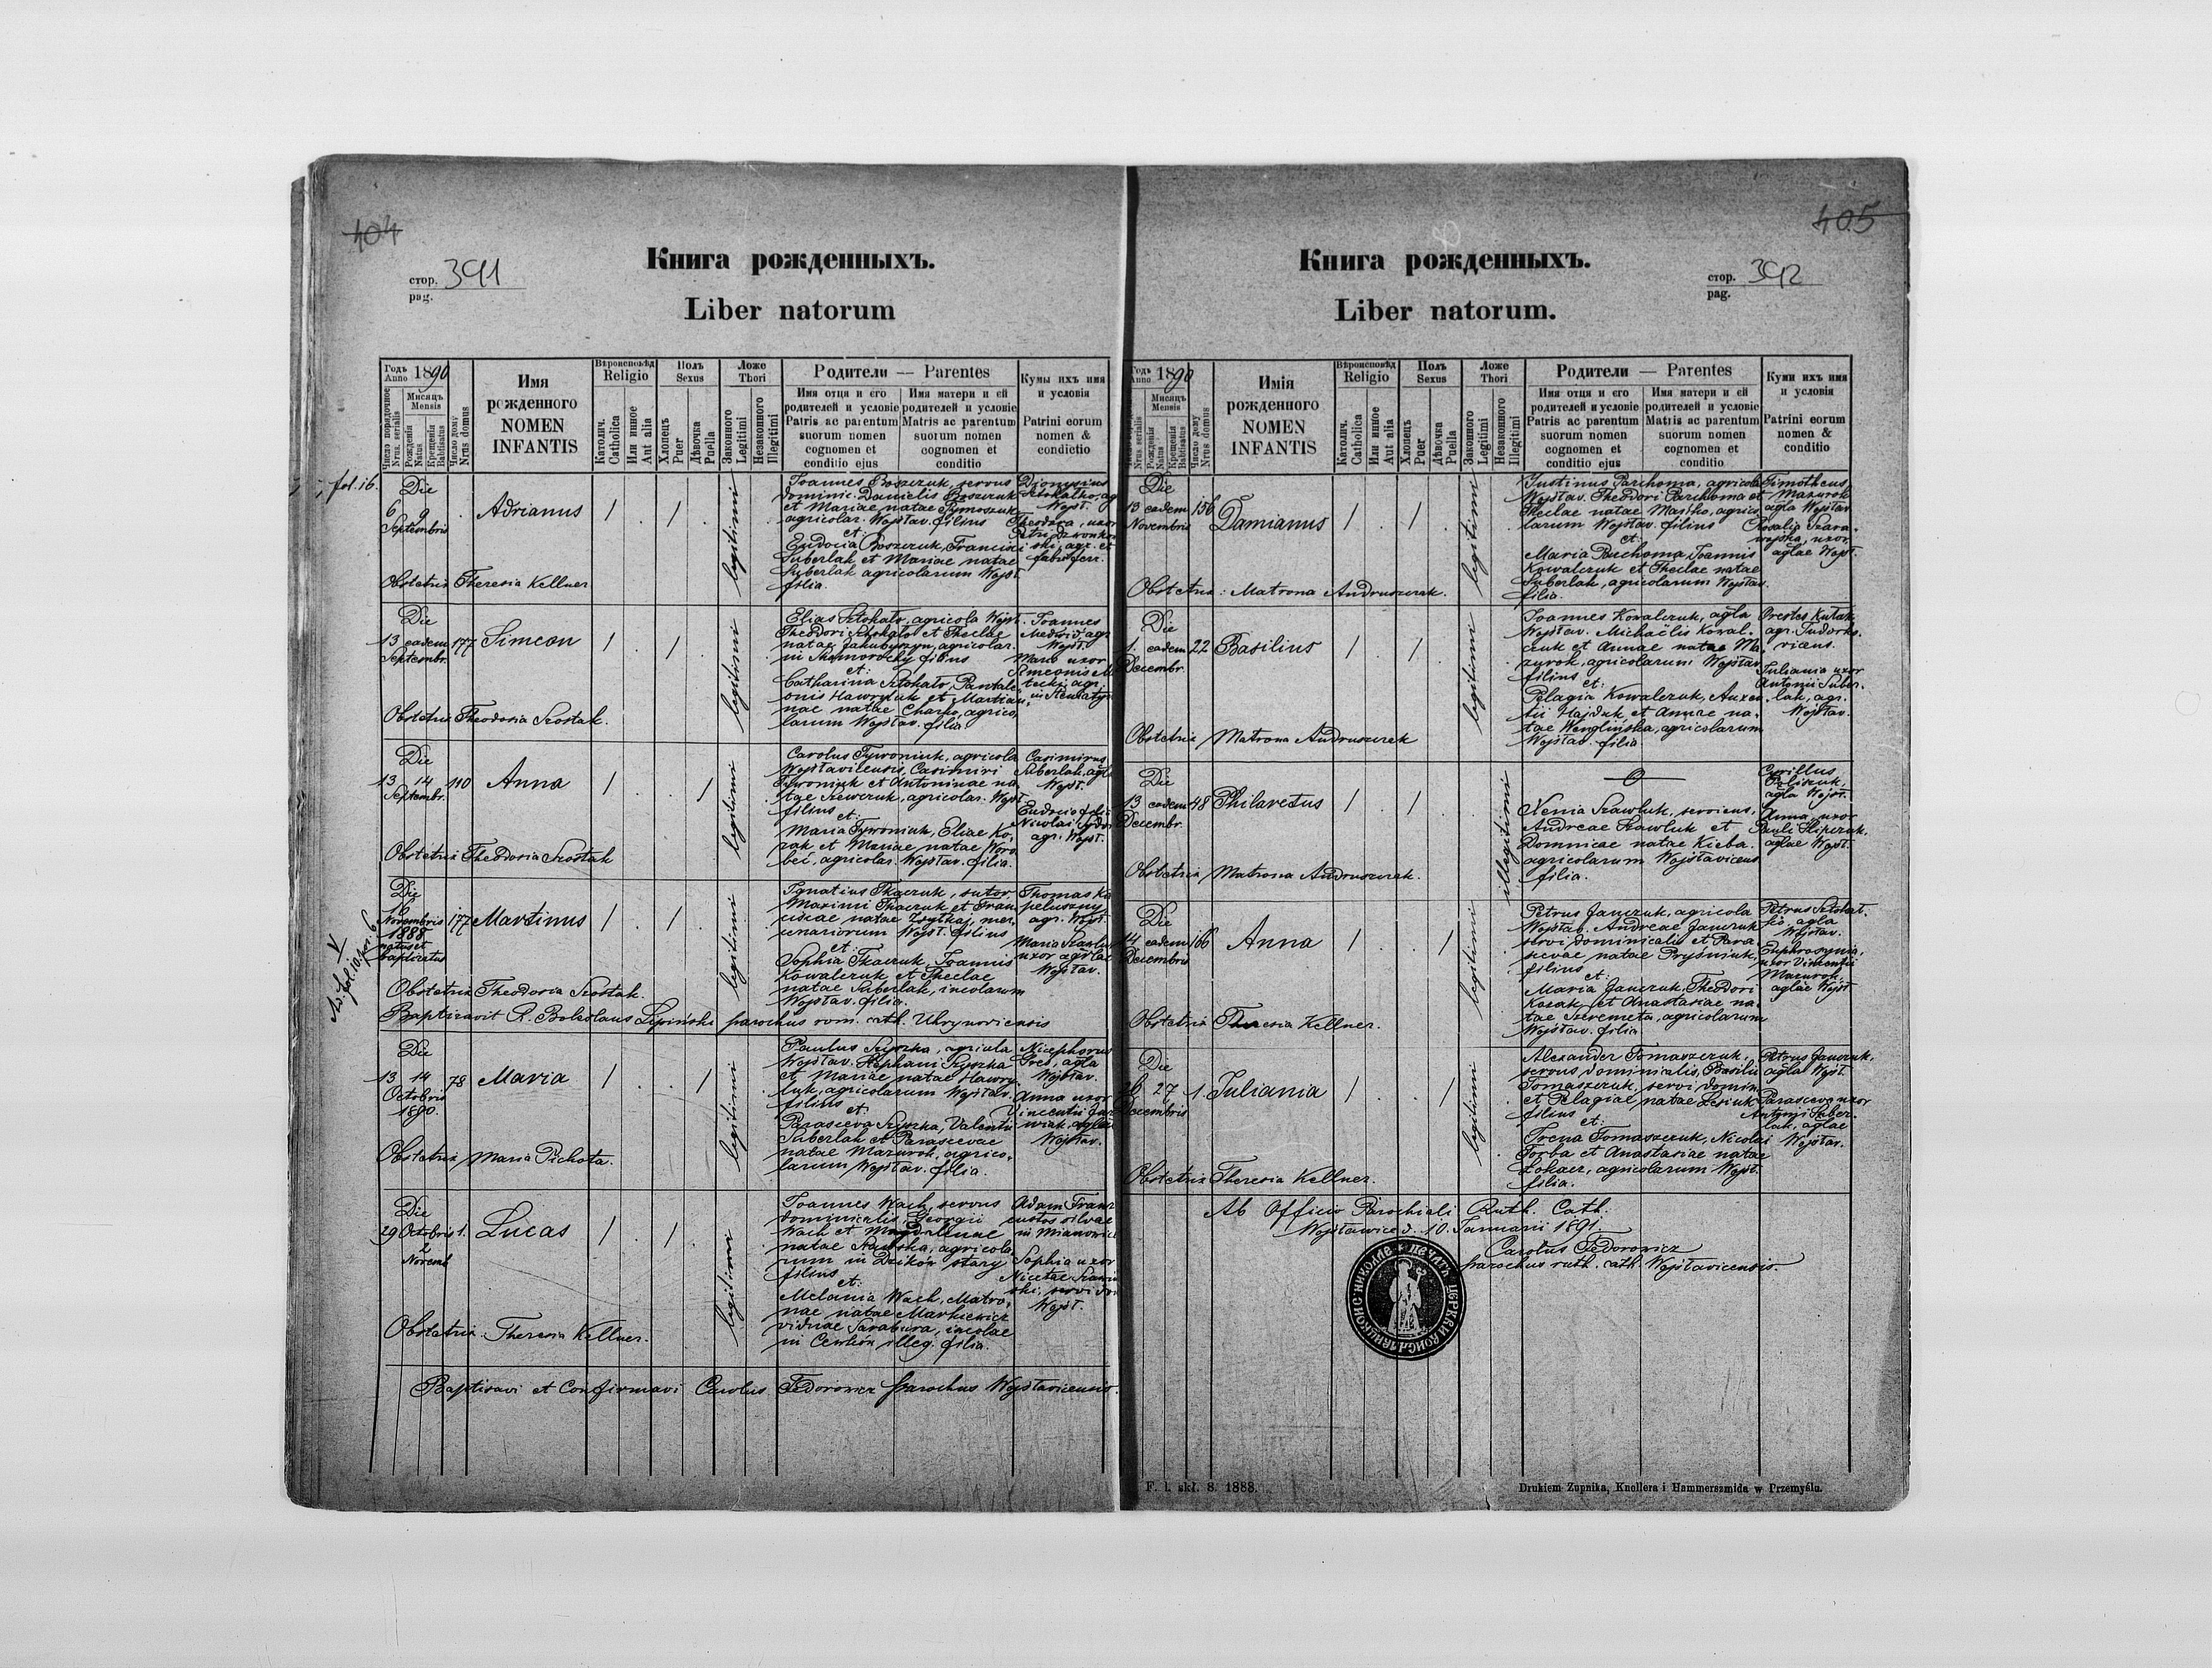 404
стор. 391
pag.
Книга рожденныхъ.
Liber natorum
Годъ Anno 1890
Мисяцъ Mensis
Число порядочное Nrus. serialis
Рождения Natus
Крещения Babtisatus
Число дому Nrus domus
Имя рожденного
NOMEN INFANTIS
Вѣроисповѣд Religio
Католич. Catholica
Или инное Aut alia
Полъ Sexus
Хлопецъ Puer
Дѣвочка Puella
Ложе Thori
Законного Legitimi
Незаконного Illegitimi
Родители — Parentes
Имя отця и его родителей и условіе
Patris ac parentum suorum nomen cognomen et conditio ejus
Имя матери и ей родителей и условіе
Matris ac parentum suorum nomen cognomen et conditio
Кумы ихъ имя и условія
Patrini eorum nomen & condictio
fol. 16.
Die
6 9
Septembris
Adrianus
legitimi
Joannes Boszczuk, servus
dominic. Danielis Boszczuk
et Mariae natae Tymoszuk
agricolar. Wojsław. filius
et:
Eudocia Boszczuk, Francisci
Suberlak et Mariae natae
Suberlak agricolarum Wojsł.
filia.
Dionysius
Wojsł.
Theodora, uxor
fabri ferr.
Obstetrix Theresia Kellner
Die
13 eadem
Septembr.
177
Simeon
legitimi
Elias Sztokało, agricola Wojsł.
Theodori Sztokało et Theclae
natae Jakubyszyn, agricolar.
in Skomorochy filius
et:
Catharina Sztokało, Pantale-
onis Hawryluk et Martian-
nae natae Charko, agrico-
larum Wojsław. filia
Joannes
Medwid agr.
Wojsł.
Maria uxor
Simeonis
Obstetrix Theodosia Szostak.
Die
13 14
Septembr.
110
Anna
legitimi
Carolus Tywoniuk, agricola
Wojsławicensis, Casimiri
Tywoniuk et Antoninae na-
tae Szewczuk, agricolar. Wojsł.
filius
et:
Maria Tywoniuk, Eliae Ko-
zak et Mariae natae Woro-
beć, agricolar. Wojsław. filia.
Casimirus
Suberlak, agla
Wojsł.
Eudocia filia
Nicolai
agr. Wojsł.
Obstetrix Theodosia Szostak
Die
16
Novembris
1888
natus et
baptisatus
177
Martinus
legitimi
Ignatius Tkaczuk, sutor,
Maximi Tkaczuk et Fran-
ciscae natae Zsytkaj, mer-
cenariorum Wojsł. filius
et:
Sophia Tkaczuk, Joannis
Kowalczuk et Theclae
natae Suberlak, incolarum
Wojsław. filia.
Thomas Ka-
peluszny
agr. Wojsł.
Maria Szawluk
uxor agr̃lae
Wojsław.
Obstetrix Theodosia Szostak.
Baptisavit R. Boleslaus Lipiński parochus rom. cath. Uhrynoviensis
Die
13 14
Octobris
1890.
78
Maria
legitimi
Paulus Szyszka, agricola
Wojsław. Stephani Szyszka
et Mariae natae Hawry-
luk, agricolarum Wojsław.
filius
et:
Parasceva Szyszka, Valenti
Suberlak et Parascevae
natae Mazurok, agrico-
larum Wojsław. filia.
Nicephorus
agla
Wojsław.
Anna uxor
Vincentii
Wojsław.
Obstetrix Maria Pichota.
Die
29 Octobris
2
Novemb
1.
Lucas
legitimi
Joannes Wach, servus
dominicalis, Georgii
Wach et Magdalenae
natae Stańska, agricola-
rum in Dzików stary
filius
et:
Melania Wach, Matro-
nae natae Markiewicz
viduae Sarabura, incolae
in Cewków illeg. filia.
Adam Franz
custos silvae
in Mianowice
Sophia uxor
Nicetae
Wojsł.
Obstetrix Theresia Kellner.
Baptisavi et Confirmavi Carolus Fedorowicz parochus Wojsławicensis.
405
стор. 392
pag.
Книга рожденныхъ.
Liber natorum.
Годъ Anno 1890
Мисяцъ Mensis
Nrus. serialis
Рожденія Natus
Крещенія Babtisatus
Число дому Nrus domus
Имія рожденного
NOMEN INFANTIS
Вѣроисповѣд Religio
Католич. Catholica
Или инное Aut alia
Полъ Sexus
Хлопецъ Puer
Дѣвочка Puella
Ложе Thori
Законного Legitimi
Незаконного Illegitimi
Родители — Parentes
Имя отця и его родителей и условіе
Patris ac parentum suorum nomen cognomen et conditio ejus
Имя матери и ей родителей и условіе
Matris ac parentum suorum nomen cognomen et conditio
Куми ихъ имя и условія
Patrini eorum nomen & conditio
Die
13 eadem
Novembris
156
Damianus
legitimi
Justinus Parchoma, agricola
Wojsław. Theodori Parchoma et
Theclae natae Masko, agrico-
larum Wojsław. filius
et:
Maria Parchoma, Joannis
Kowalczuk et Theclae natae
Suberlak, agricolarum Wojsław.
filia.
Timotheus
Mazurok
agla Wojsław
Rosalia Skara-
wojska, uxor
aglae Wojsł.
Obstetrix: Matrona Andruszczak.
Die
1. eadem
Decembr.
22
Basilius
legitimi
Joannes Kowalczuk, agla
Wojsław. Michaëlis Kowal-
czuk et Annae natae Ma-
zurok, agricolarum Wojsław.
filius
et:
Pelagia Kowalczuk, Auxen-
tii Hajduk et Annae na-
tae Wenglińska, agricolarum
Wojsław. filia
Orestes Kutak
agr. Tudorko-
vicens.
Juliania uxor
Antonii Suber-
lak, agr.
Wojsław.
Obstetrix Matrona Andruszczak
Die
13 eadem
Decembr.
48
Philaretus
illegitimi
Xenia Szawluk, serviens,
Andreae Szawluk et
Domnicae natae Kieba.
agricolarum Wojsławicens
filia.
Cyrillus
agla Wojsł.
Anna, uxor
Pauli Slipczuk,
aglae Wojsł.
Obstetrix Matrona Andruszczak.
Die
14 eadem
Decembris
166
Anna
legitimi
Petrus Janczuk, agricola
Wojsław. Andreae Janczuk
servi dominicalis et Para-
scevae natae Pryśniuk,
filius
et:
Maria Janczuk, Theodori
Kozak et Anastasiae na-
tae Szeremeta, agricolarum
Wojsław. filia
Petrus Sztokał-
ło, agla
Wojsław.
Euphrosynia,
uxor Vincentii
Mazurok,
aglae Wojsł.
Obstetrix Theresia Kellner.
Die
26 27
Decembris
1.
Juliania
legitimi
Alexander Tomaszczuk,
servus dominicalis, Basilii
Tomaszczuk, servi domin.
et Pelagiae natae Lesiuk
filius
et:
Irena Tomaszczuk, Nicolai
Torba et Anastasiae natae
Łokacz, agricolarum Wojsł.
filia.
Petrus Janczuk,
agla Wojsł.
Parasceva uxor
Antonii Suber-
lak, aglae
Wojsław.
Obstetrix Theresia Kellner.
Ab Officio Parochiali Ruth. Cath.
Wojsławice d. 10. Januarii 1891.
Carolus Fedorowicz
parochus ruth. cath. Wojsławicensis.
F. l. skł. 8. 1888.
Drukiem Zupnika, Knollera i Hammerszmida w Przemyślu.